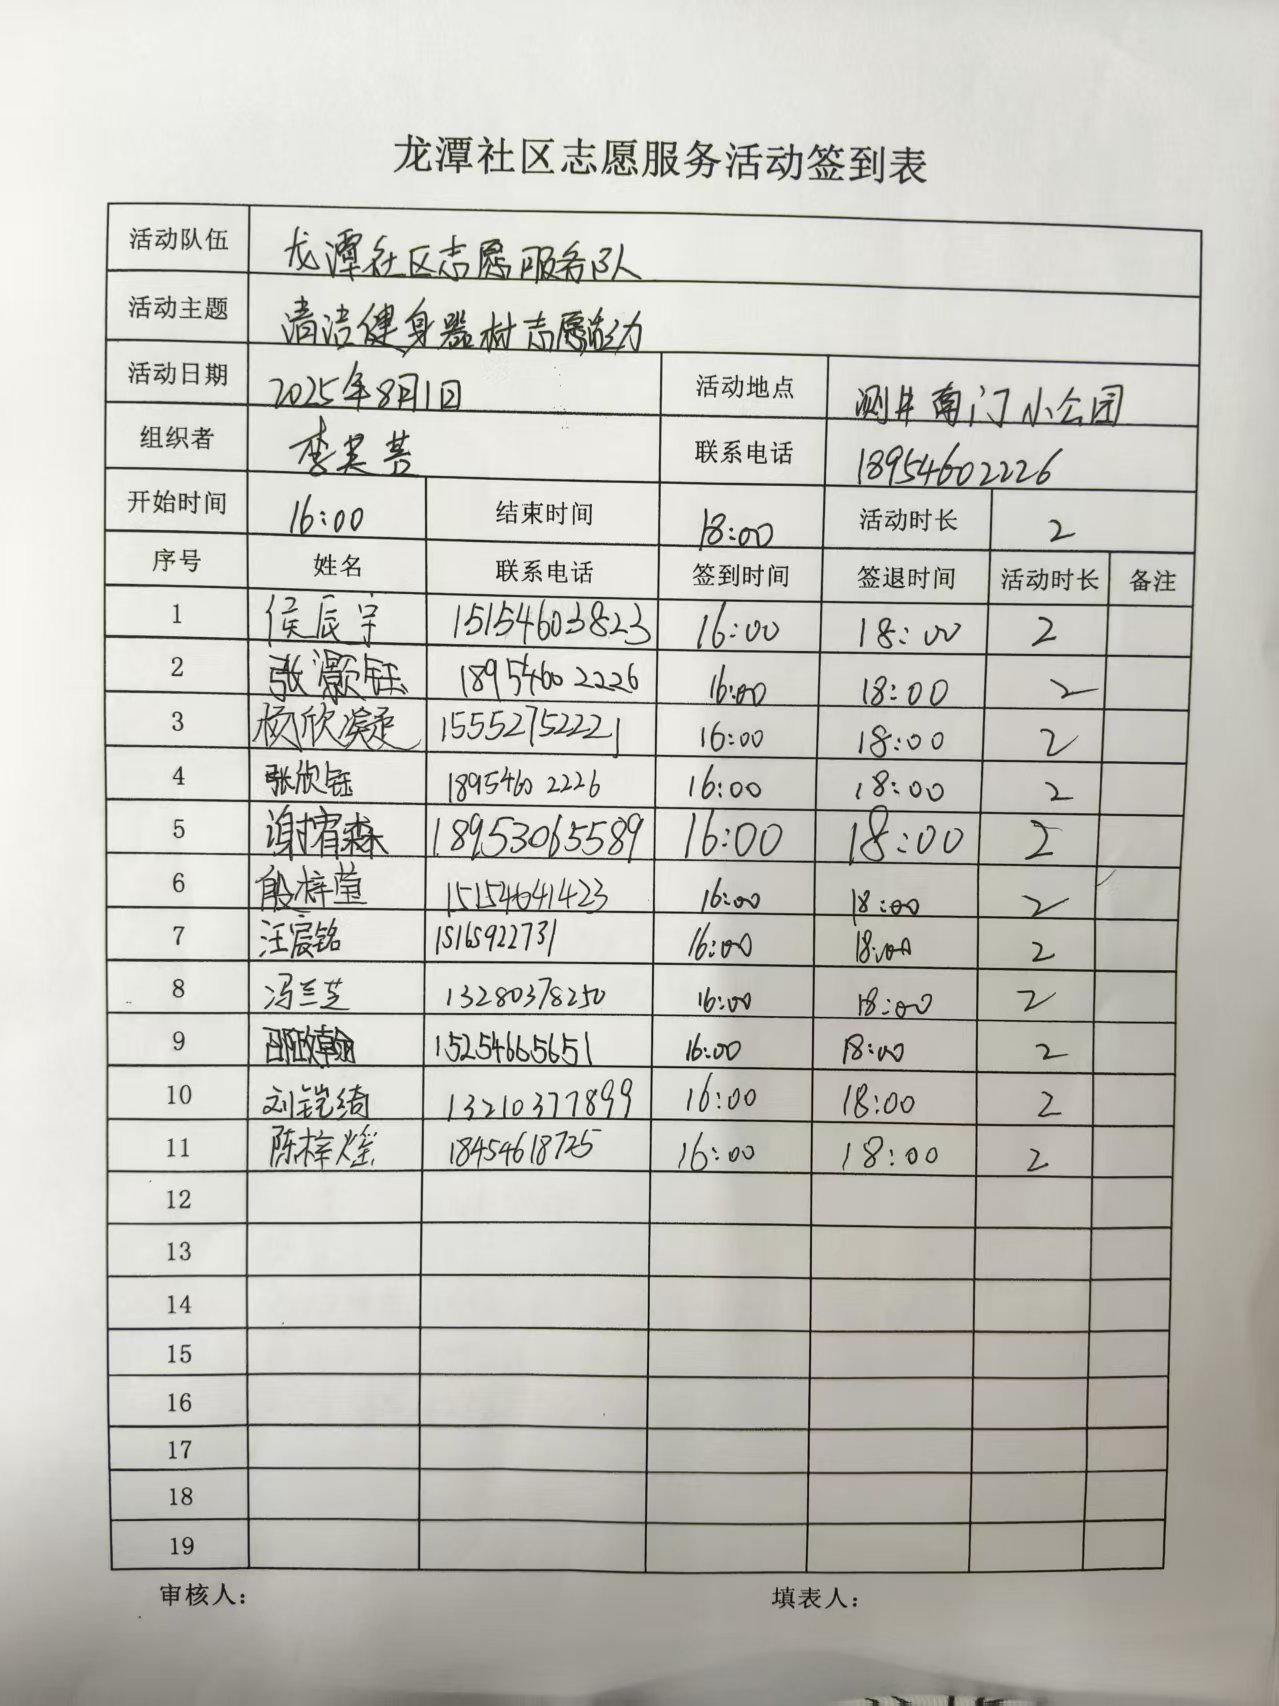 龙潭社区志愿服务活动签到表
活动队伍 龙潭社区志愿服务队
活动主题 清洁健身器材志愿活动
活动日期 2025年8月1日 活动地点 测井南门小公园
组织者 李英芸 联系电话 18954602226
开始时间 16:00 结束时间 18:00 活动时长 2
序号 姓名 联系电话 签到时间 签退时间 活动时长 备注
1 侯辰宇 15154603823 16:00 18:00 2
2 张灏钰 18954602226 16:00 18:00 2
3 杨欣凝 15552752221 16:00 18:00 2
4 张欣钰 18954602226 16:00 18:00 2
5 谢宥森 18953065589 16:00 18:00 2
6 殷梓萱 15154641423 16:00 18:00 2
7 汪宸铭 15165922731 16:00 18:00 2
8 冯兰芝 13280378250 16:00 18:00 2
9 15254665651 16:00 18:00 2
10 刘铠绮 13210377899 16:00 18:00 2
11 陈梓熘 18454618725 16:00 18:00 2
12
13
14
15
16
17
18
19
审核人： 填表人：